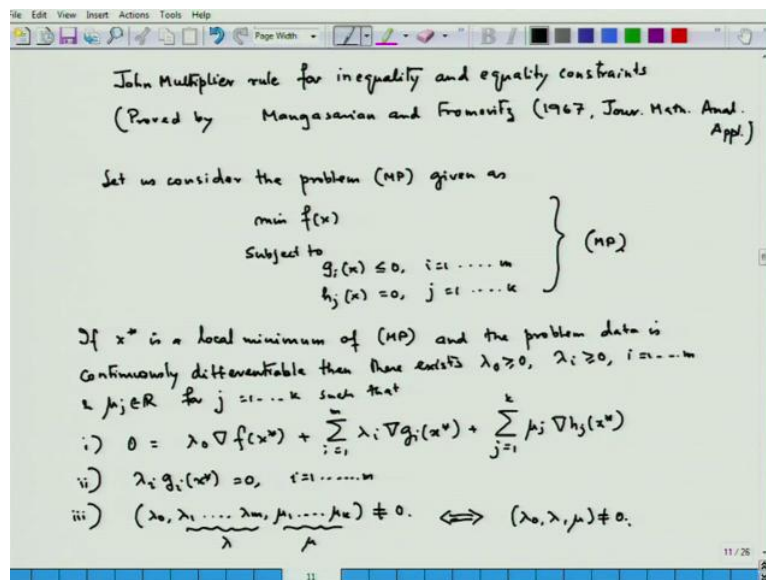 File Edit View Insert Actions Tools Help
Page Width
B I
John Multiplier rule for inequality and equality constraints
(Proved by Mangasarian and Fromovitz (1967, Jour. Math. Anal.
Appl.)
Let us consider the problem (MP) given as
min f(x)
Subject to
g_i(x) ≤ 0, i=1 ..... m
h_j(x) = 0, j=1 ..... k
(MP)
If x* is a local minimum of (MP) and the problem data is
continuously differentiable then there exists λ_0 ≥ 0, λ_i ≥ 0, i=1...m
& μ_j ∈ ℝ for j=1...k such that
i) 0 = λ_0 ∇f(x*) + Σ_{i=1}^{m} λ_i ∇g_i(x*) + Σ_{j=1}^{k} μ_j ∇h_j(x*)
ii) λ_i g_i(x*) = 0, i=1......m
iii) (λ_0, λ_1 .... λ_m, μ_1 .... μ_k) ≠ 0. ⟺ (λ_0, λ, μ) ≠ 0.
λ μ
11 / 26
11